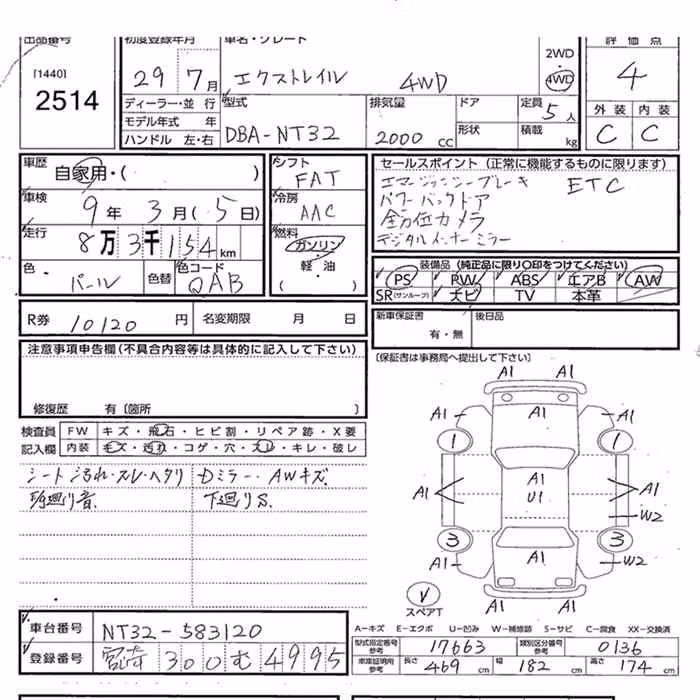 出品番号
[1440]
2514
初度登録年月
29 7月
車名・グレード
エクストレイル 4WD
2WD
・
4WD
評価点
4
外装 内装
C C
ディーラー・並行
モデル年式 年
ハンドル 左・右
型式
DBA-NT32
排気量
2000 cc
ドア
形状
定員 5人
積載 kg
車歴
自家用・( )
車検
9年 3月(5日)
走行
8万3千154km
色 パール 色替
色コード QAB
シフト
FAT
冷房
AAC
燃料
ガソリン
・
軽・油
( )
セールスポイント (正常に機能するものに限ります)
エマージェンシーブレーキ ETC
パワーバックドア
全方位カメラ
デジタルインナーミラー
装備品 (純正品に限り○印をつけてください)
PS PW ABS エアB AW
SR(サンルーフ) ナビ TV 本革
R券 10120円 名変期限 月 日
新車保証書
有・無
後日品
(保証書は事務局へ提出して下さい)
注意事項申告欄(不具合内容等は具体的に記入して下さい)
修復歴 有〔箇所 〕
検査員 FW キズ・飛石・ヒビ割・リペア跡・X要
記入欄 内装 キズ・汚れ・コゲ・穴・スレ・キレ・破レ
シート汚れ・スレ・ヘタリ Dミラー・AWキズ
下廻りS.
A1 A1
A1 A1 A1
1 1
A1 A1 A1
U1
W2
3 3
A1 A1 W2
スペアT
A1 A1
A-キズ E-エクボ U-凹み W-補修跡 S-サビ C-腐食 XX-交換済
車台番号 NT32-583120
登録番号 宮崎 300 む 4995
型式指定番号 参考 17663 類別区分番号 参考 0136
車庫証明用 参考 長さ 469cm 幅 182cm 高さ 174cm